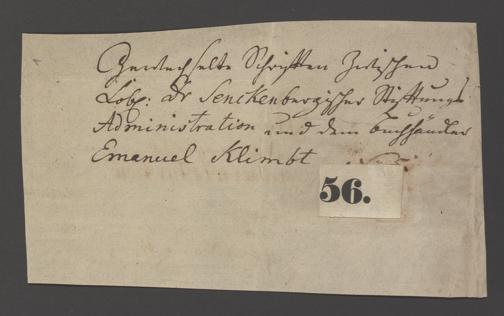 Gewechselte Schriften Zwischen
Löbl: Dr Senckenbergischer Stiftungs
Administration und dem Buchhändler
Emanuel Klimbt
56.